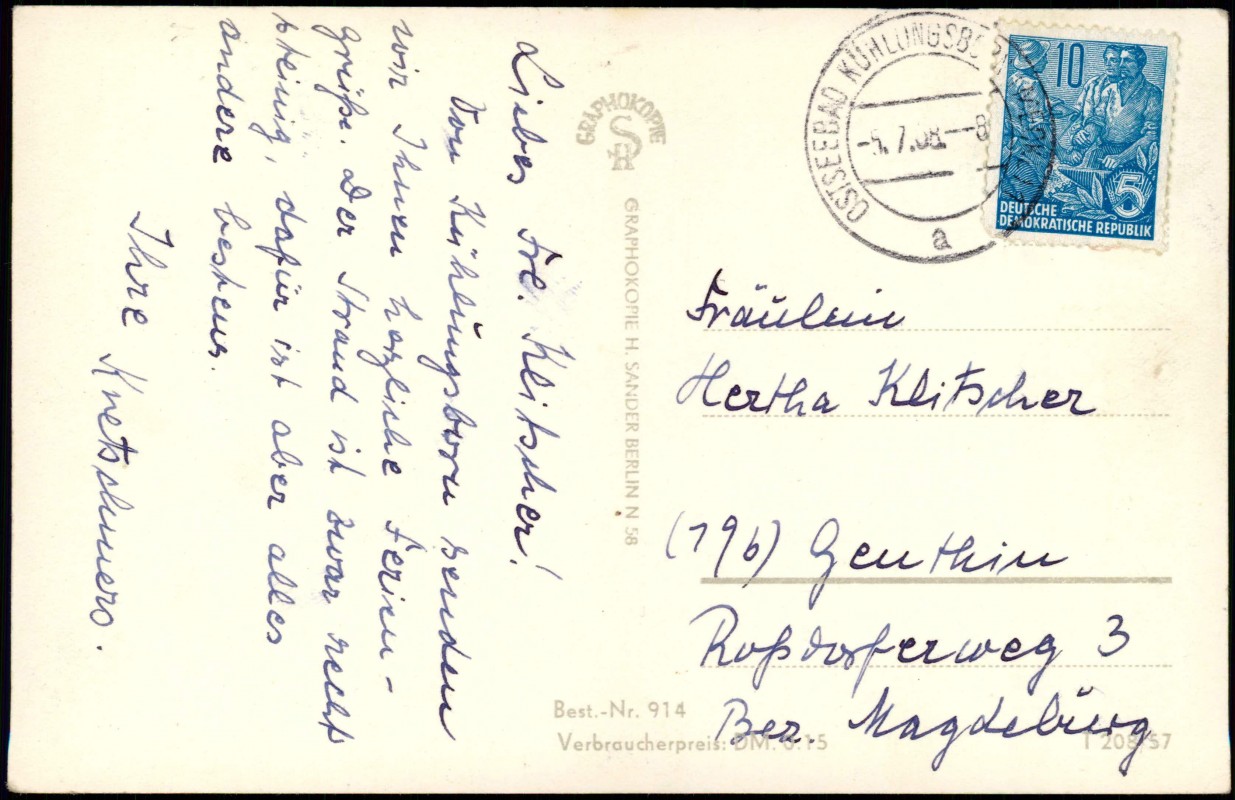 Liebes Frl. Klitscher!
Von Kühlungsborn senden
wir Ihnen herzliche Ferien-
grüße. Der Strand ist zwar recht
steinig, dafür ist aber alles
andere bestens.
Ihre Kretschmers.
GRAPHOKOPIE
GRAPHOKOPIE H. SANDER BERLIN N 58
OSTSEEBAD KÜHLUNGSBO
7.58.-8
a
10
5
DEUTSCHE
DEMOKRATISCHE REPUBLIK
Fräulein
Hertha Klitscher
(19b) Genthin
Roßdorferweg 3
Bez. Magdebürg
Best.-Nr. 914
Verbraucherpreis: DM. 0.15
T 208/57